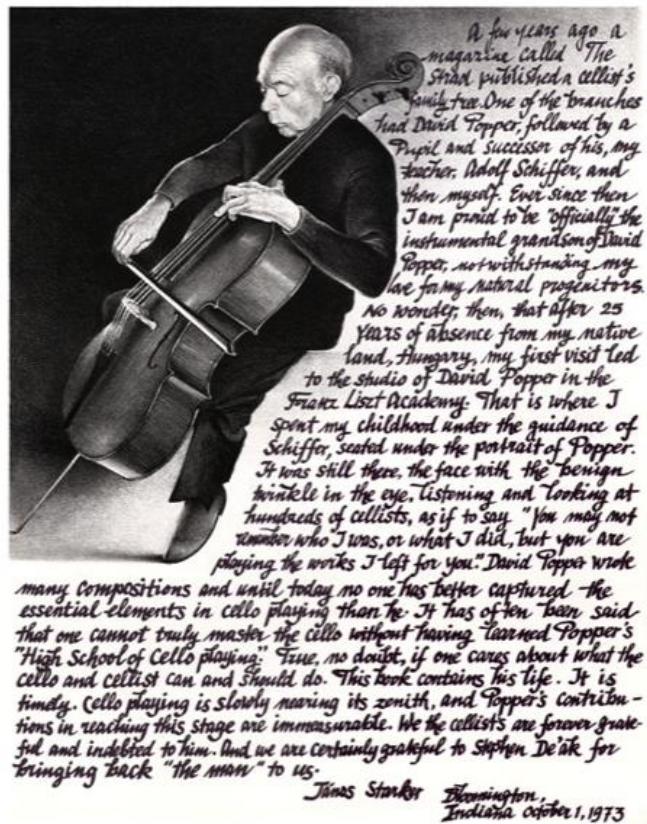 A few years ago a
magazine called "The
Strad published a cellist's
family tree. One of the branches
had David Popper, followed by a
Pupil and successor of his, my
teacher, Adolf Schiffer, and
then myself. Ever since then
I am proud to be "officially" the
instrumental grandson of David
Popper, notwithstanding my
love for my natural progenitors.
No wonder, then, that after 25
years of absence from my native
land, Hungary, my first visit led
to the studio of David Popper in the
Franz Liszt Academy. That is where I
spent my childhood under the guidance of
Schiffer, seated under the portrait of Popper.
It was still there, the face with the benign
twinkle in the eye, listening and looking at
hundreds of cellists, as if to say "You may not
remember who I was, or what I did, but you are
playing the works I left for you." David Popper wrote
many compositions and until today no one has better captured the
essential elements in cello playing than he. It has often been said
that one cannot truly master the cello without having learned Popper's
"High School of Cello playing." True, no doubt, if one cares about what the
cello and cellist can and should do. This book contains his life. It is
timely. Cello playing is slowly nearing its zenith, and Popper's contribu-
tions in reaching this stage are immeasurable. We the cellists are forever grate-
ful and indebted to him. And we are certainly grateful to Stephen De'ak for
bringing back "the man" to us.
János Starker Bloomington,
Indiana October 1, 1973